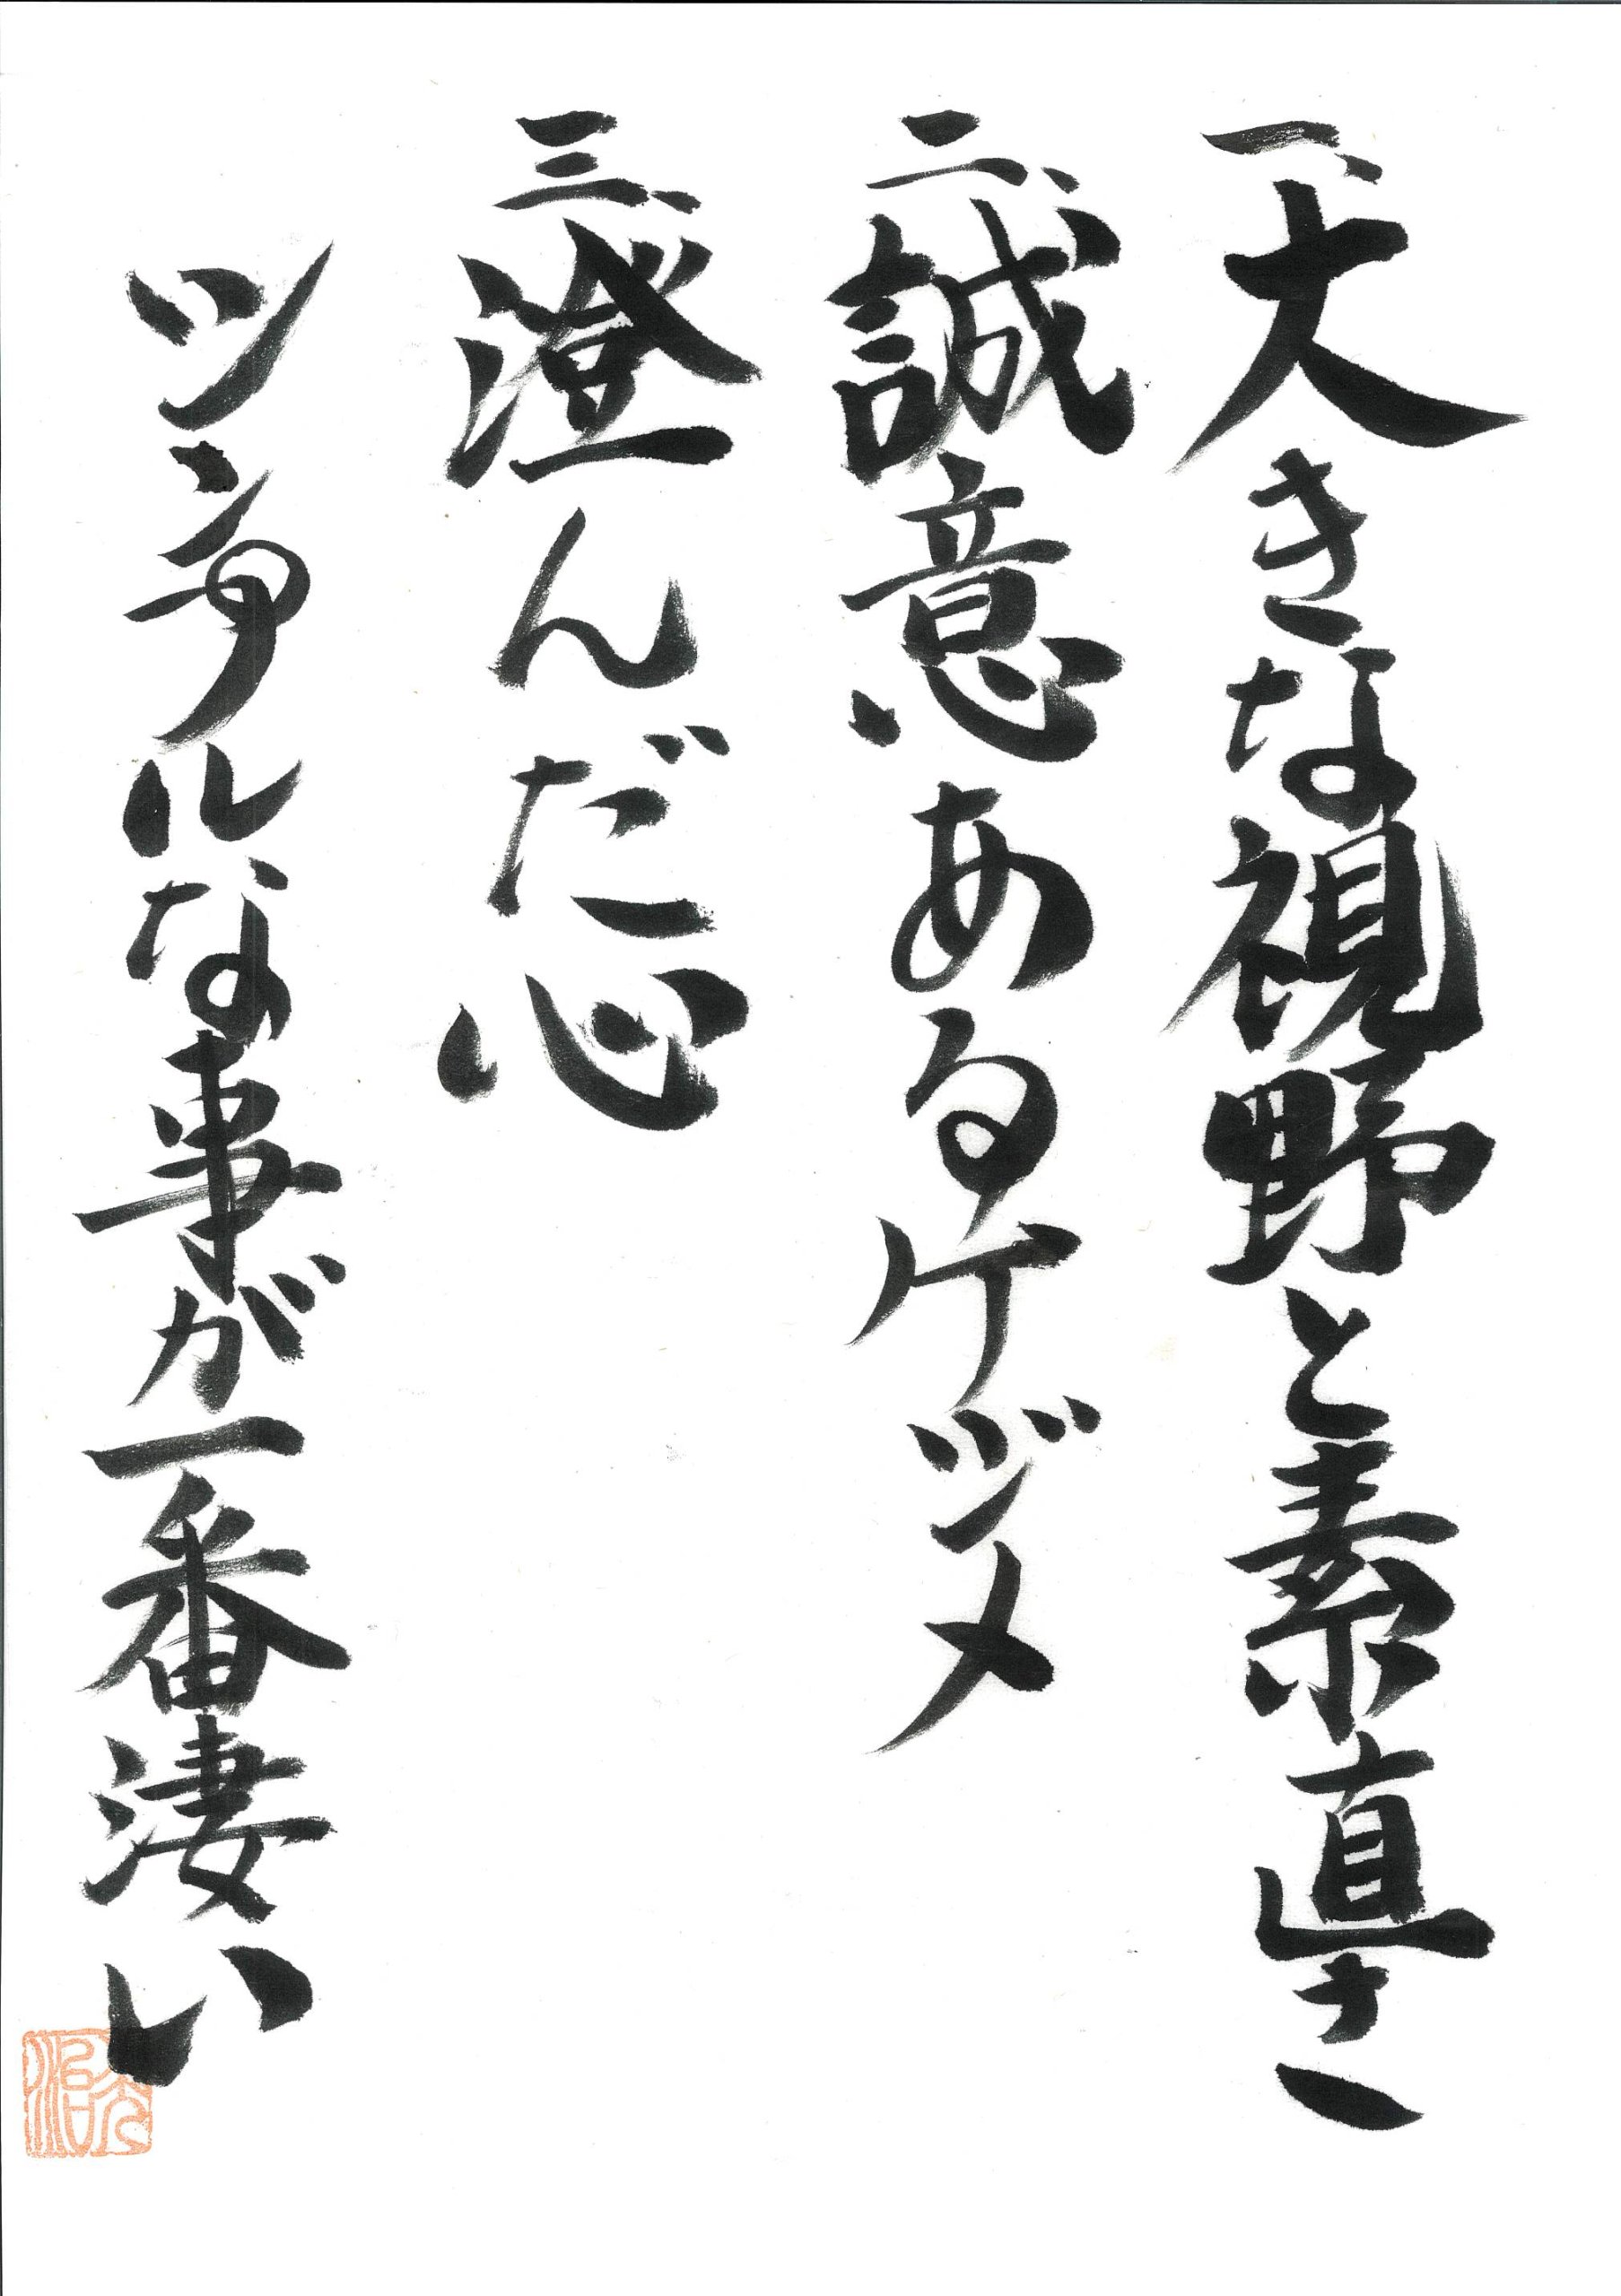 一、大きな視野と素直さ
二、誠意あるケヅメ
三、澄んだ心
シンプルな事が一番凄い